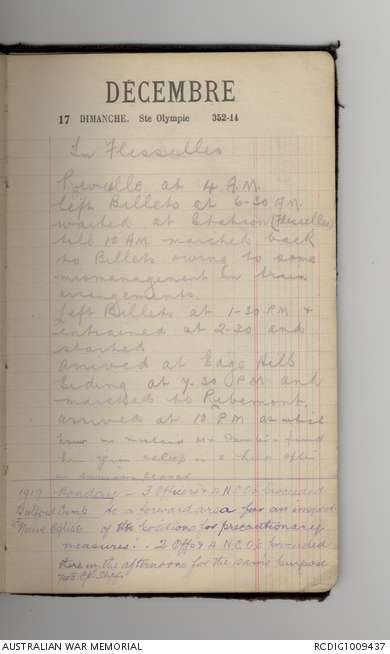 DÉCEMBRE
17 DIMANCHE. Ste Olympie 352-14
In Flesselles
Reveille at 4 A.M.
left Billets at 6-30 A.M.
waited at Station (Flesselles)
till 10 AM marched back
to Billets owing to some
mismanagement in train
arrangements.
left Billets at 1-30 P.M &
entrained at 2-30 and
started
arrived at Edge Hill
Siding at 7.30 P.M and
marched to Ribemont,
arrived at 10 P.M at which
found
asleep in a
1917 Monday - 3 Officers & 4 N.C.O.s proceeded
Camp to a forward area for an
Neuve Eglise of the positions for precautionary
measures. - 2 Offs & 4 N.C.O's proceeded
there in the afternoon for the same purpose
AUSTRALIAN WAR MEMORIAL
RCDIG1009437